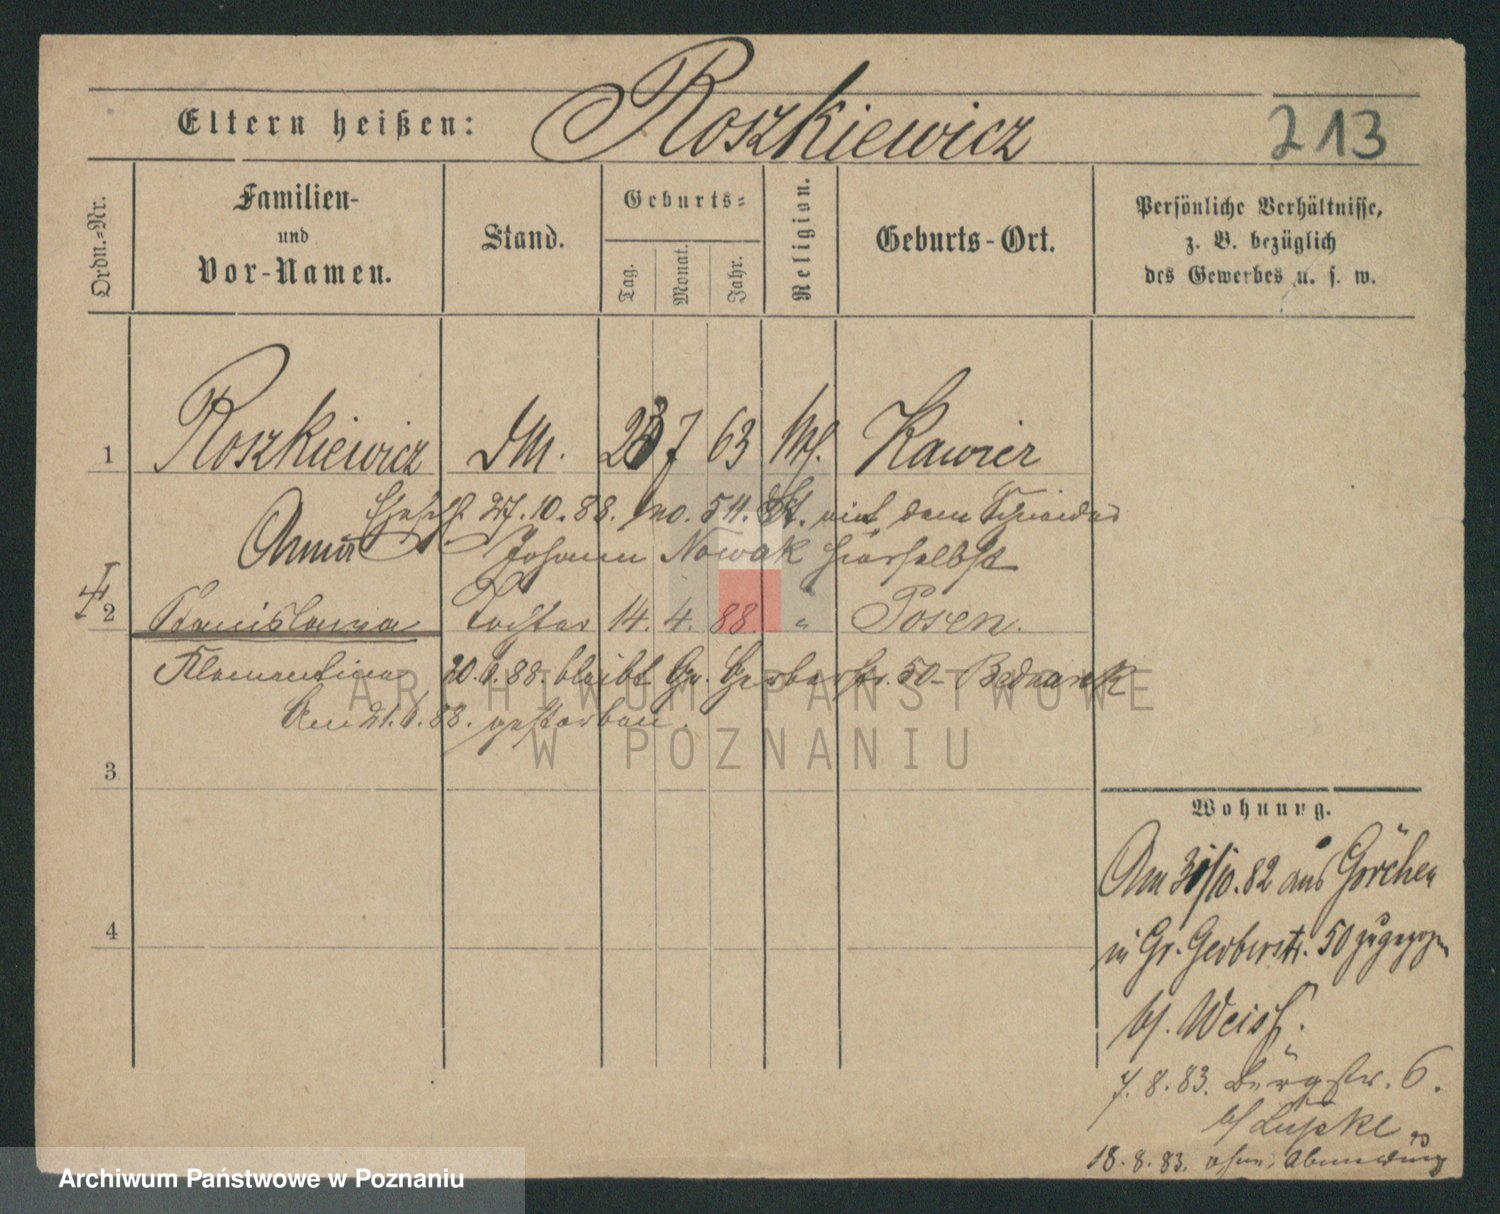 Eltern heißen: Roszkiewicz 213
Ordn.-Nr.
Familien-
und
Vor-Namen.
Stand.
Geburts-
Tag.
Monat.
Jahr.
Religion.
Geburts-Ort.
Persönliche Verhältnisse,
z. B. bezüglich
des Gewerbes u. s. w.
1 Roszkiewicz DM. 23 7 63 Kawier
27.10.88. No. 511. St. mit dem Schneider
Anna Johann Nowak hierselbst
2 Stanislawa Tochter 14. 4. 88. " Posen.
Klementina 20.6.88. bleibt Gr. Gerberstr. 50 - Bednarek
Am 21.6.88. gestorben.
ARCHIWUM PAŃSTWOWE
W POZNANIU
3
4
Wohnung.
Am 31/10.82 aus Görchen
in Gr. Gerberstr. 50 zugezogen
bf. Weiss.
7.8.83. Bürgstr. 6.
bf
18.8.83. ohne Abmeldung
Archiwum Państwowe w Poznaniu